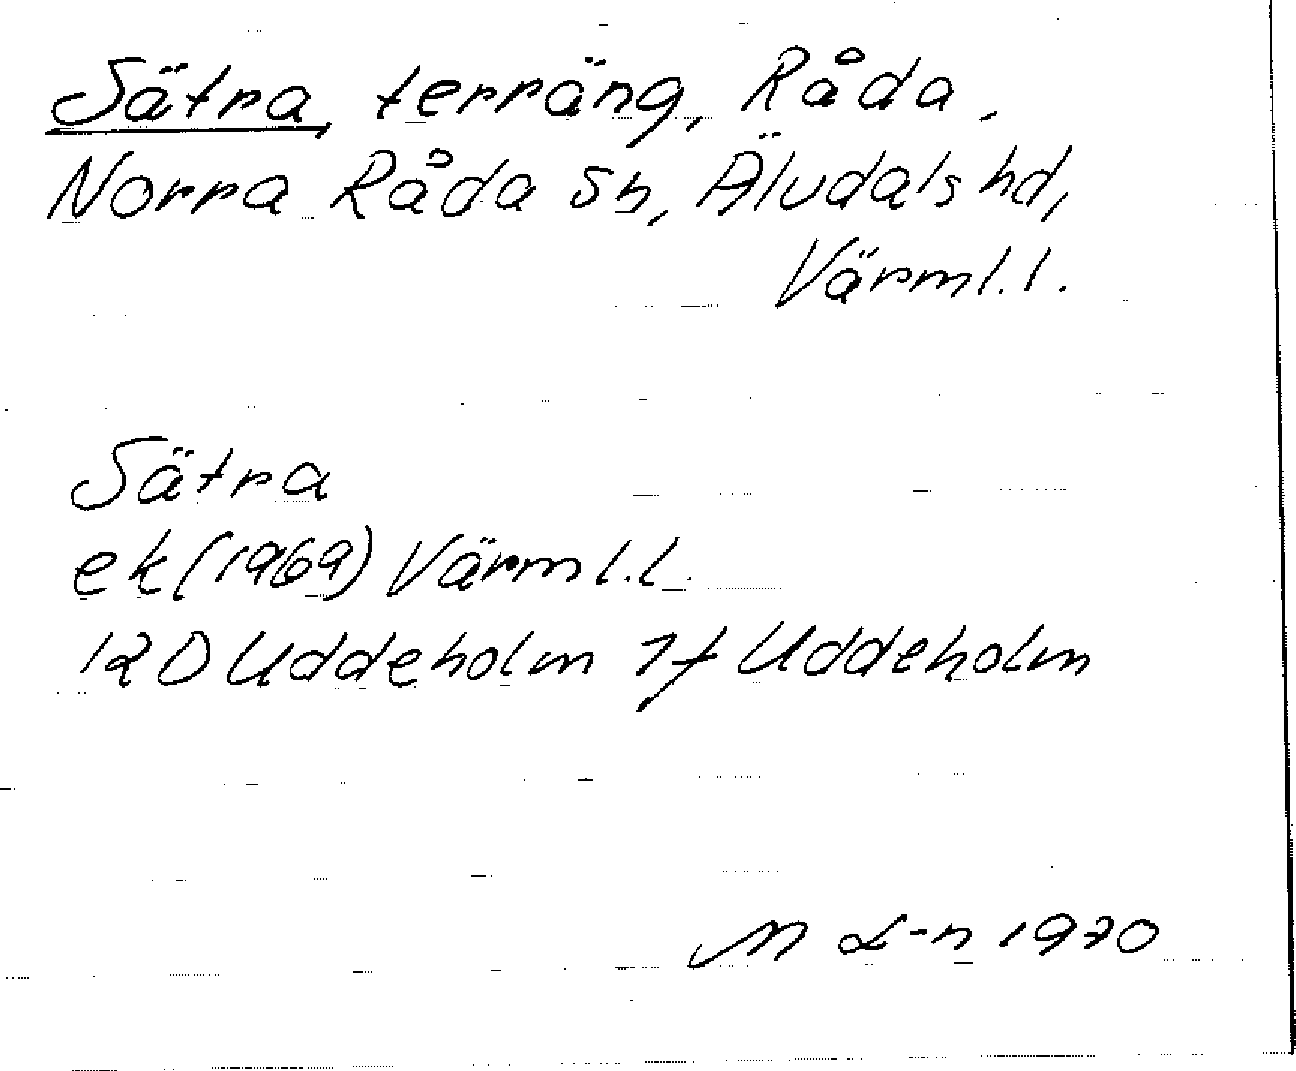 Sätra, terräng, Råda,
Norra Råda sn, Älvdals hd,
Värml. l.
Sätra
ek (1969) Värml. l.
12 D Uddeholm 7f Uddeholm
M L-n 1970